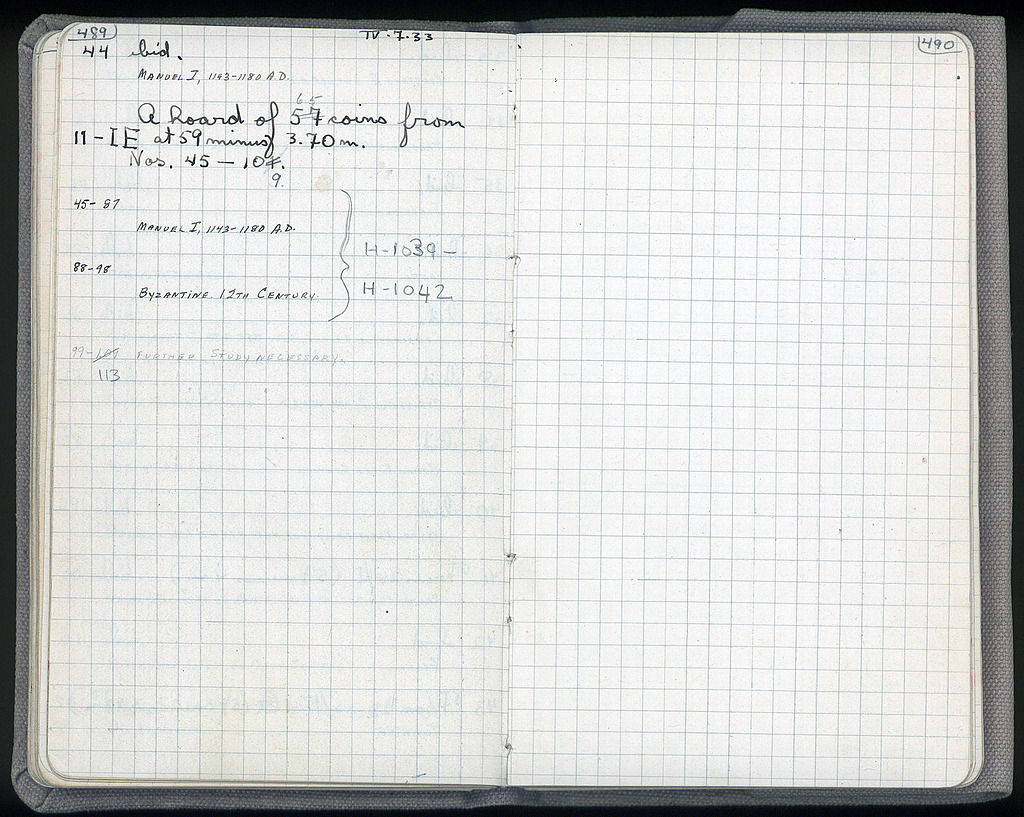 489
IV.7.33
44 ibid.
MANUEL I, 1143-1180 A.D.
65
A hoard of 57 coins from
11-IE at 59 minus 3.70 m.
Nos. 45 – 10
9.
45-87
MANUEL I, 1143-1180 A.D.
H-1039 –
88-98
BYZANTINE 12TH CENTURY.
H-1042
99-109 FURTHER STUDY NECESSARY.
113
490